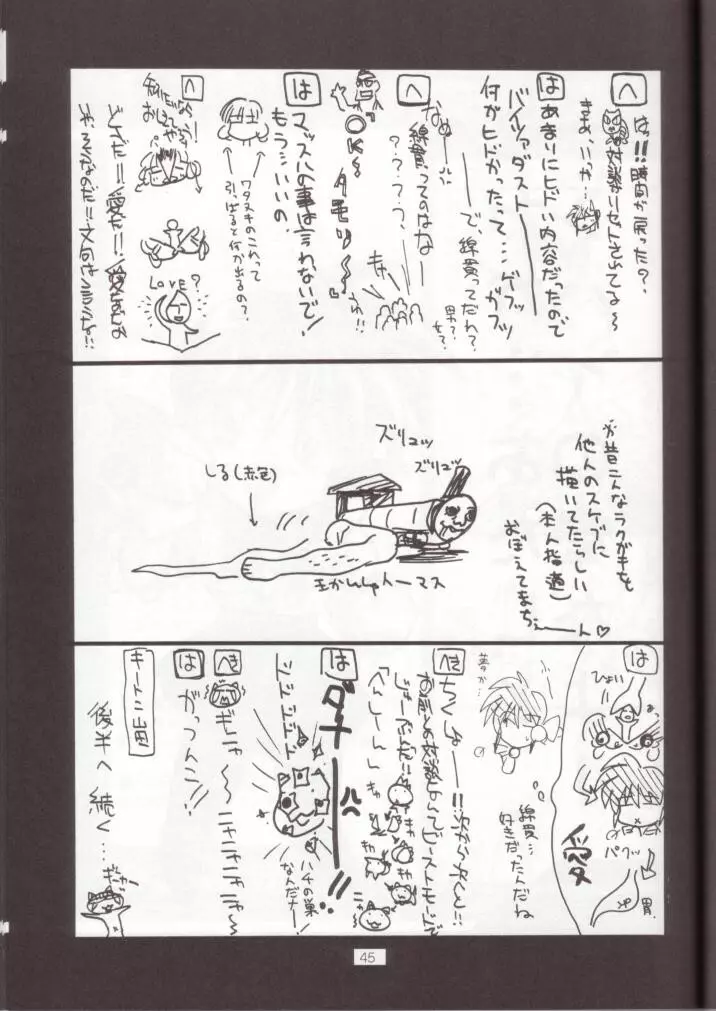 へ
はっ!!時間が戻った?
対談がリセットされてる〜
まあ、いっか…
は
あまりにヒドい内容だったので
バイツァダスト
何がヒドかったって…ゲフッ
ガフッ
で、綿貫ってだれ?
男?女?
へ
綿貫ってのはなー
????、
OK〜
タモリ〜
は
マッスルの事は言わないで!
もう…いいの。
ワタヌキのこれって
引っぱると何が出るの?
へ
Love?
どうだ!!愛だ!!
ズリュッ
ズリュッ
しる(赤色)
きかんしゃトーマス
が昔こんなラクガキを
他人のスケブに
描いてたらしい
(本人指道)
おぼえてまちぇーん♡
は
ひょい
パクッ
胃
愛
夢か…
綿貫…
好きだったんだね
へき
ちくしょー!!
お前との対談なんてビーストモードで
じゅーぶんだ!!
へんしーん
は
ダナー
ドドドドド
ハチの巣
なんだナー!
へき
ギニャ〜ニャニャニャニャ〜
は
がっつんこ!!
キートン山田
後半へ続く…
ぎゃー
45